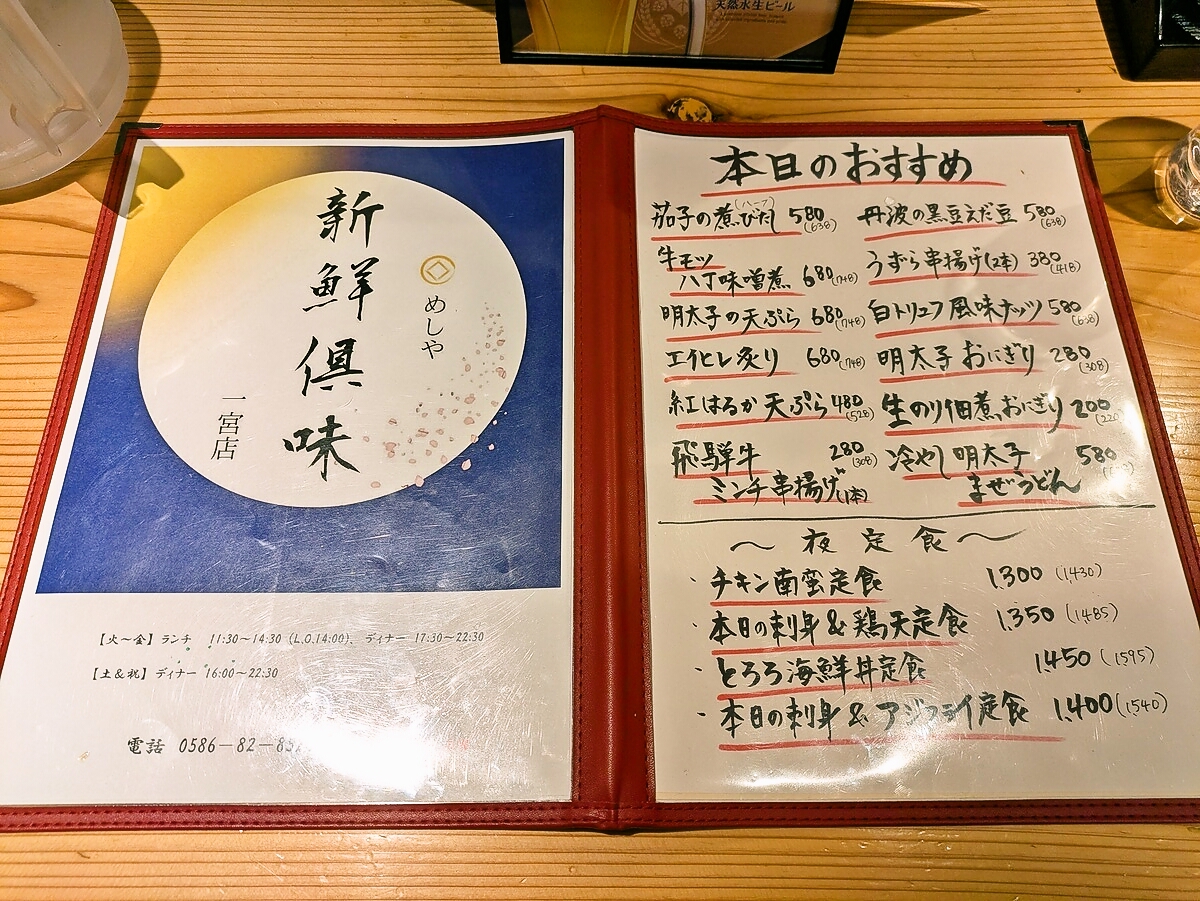 天然水生ビール
新鮮倶味
めしや
一宮店
【火～金】ランチ 11:30～14:30 (L.O.14:00)、ディナー 17:30～22:30
【土&祝】ディナー 16:00～22:30
電話 0586-82-85
本日のおすすめ
茄子の煮びたし (ハーフ) 580 (638)
牛モツ
八丁味噌煮 680 (748)
明太子の天ぷら 680 (748)
エイヒレ炙り 680 (748)
紅はるか天ぷら 480 (528)
飛騨牛 280 (308)
ミンチ串揚げ (1本)
丹波の黒豆えだ豆 580 (638)
うずら串揚げ (2本) 380 (418)
白トリュフ風味ナッツ 580 (638)
明太子おにぎり 280 (308)
生のり佃煮おにぎり 200 (220)
冷やし明太子 580
まぜうどん
～夜定食～
・チキン南蛮定食 1,300 (1,430)
・本日の刺身&鶏天定食 1,350 (1,485)
・とろろ海鮮丼定食 1,450 (1,595)
・本日の刺身&アジフライ定食 1,400 (1,540)